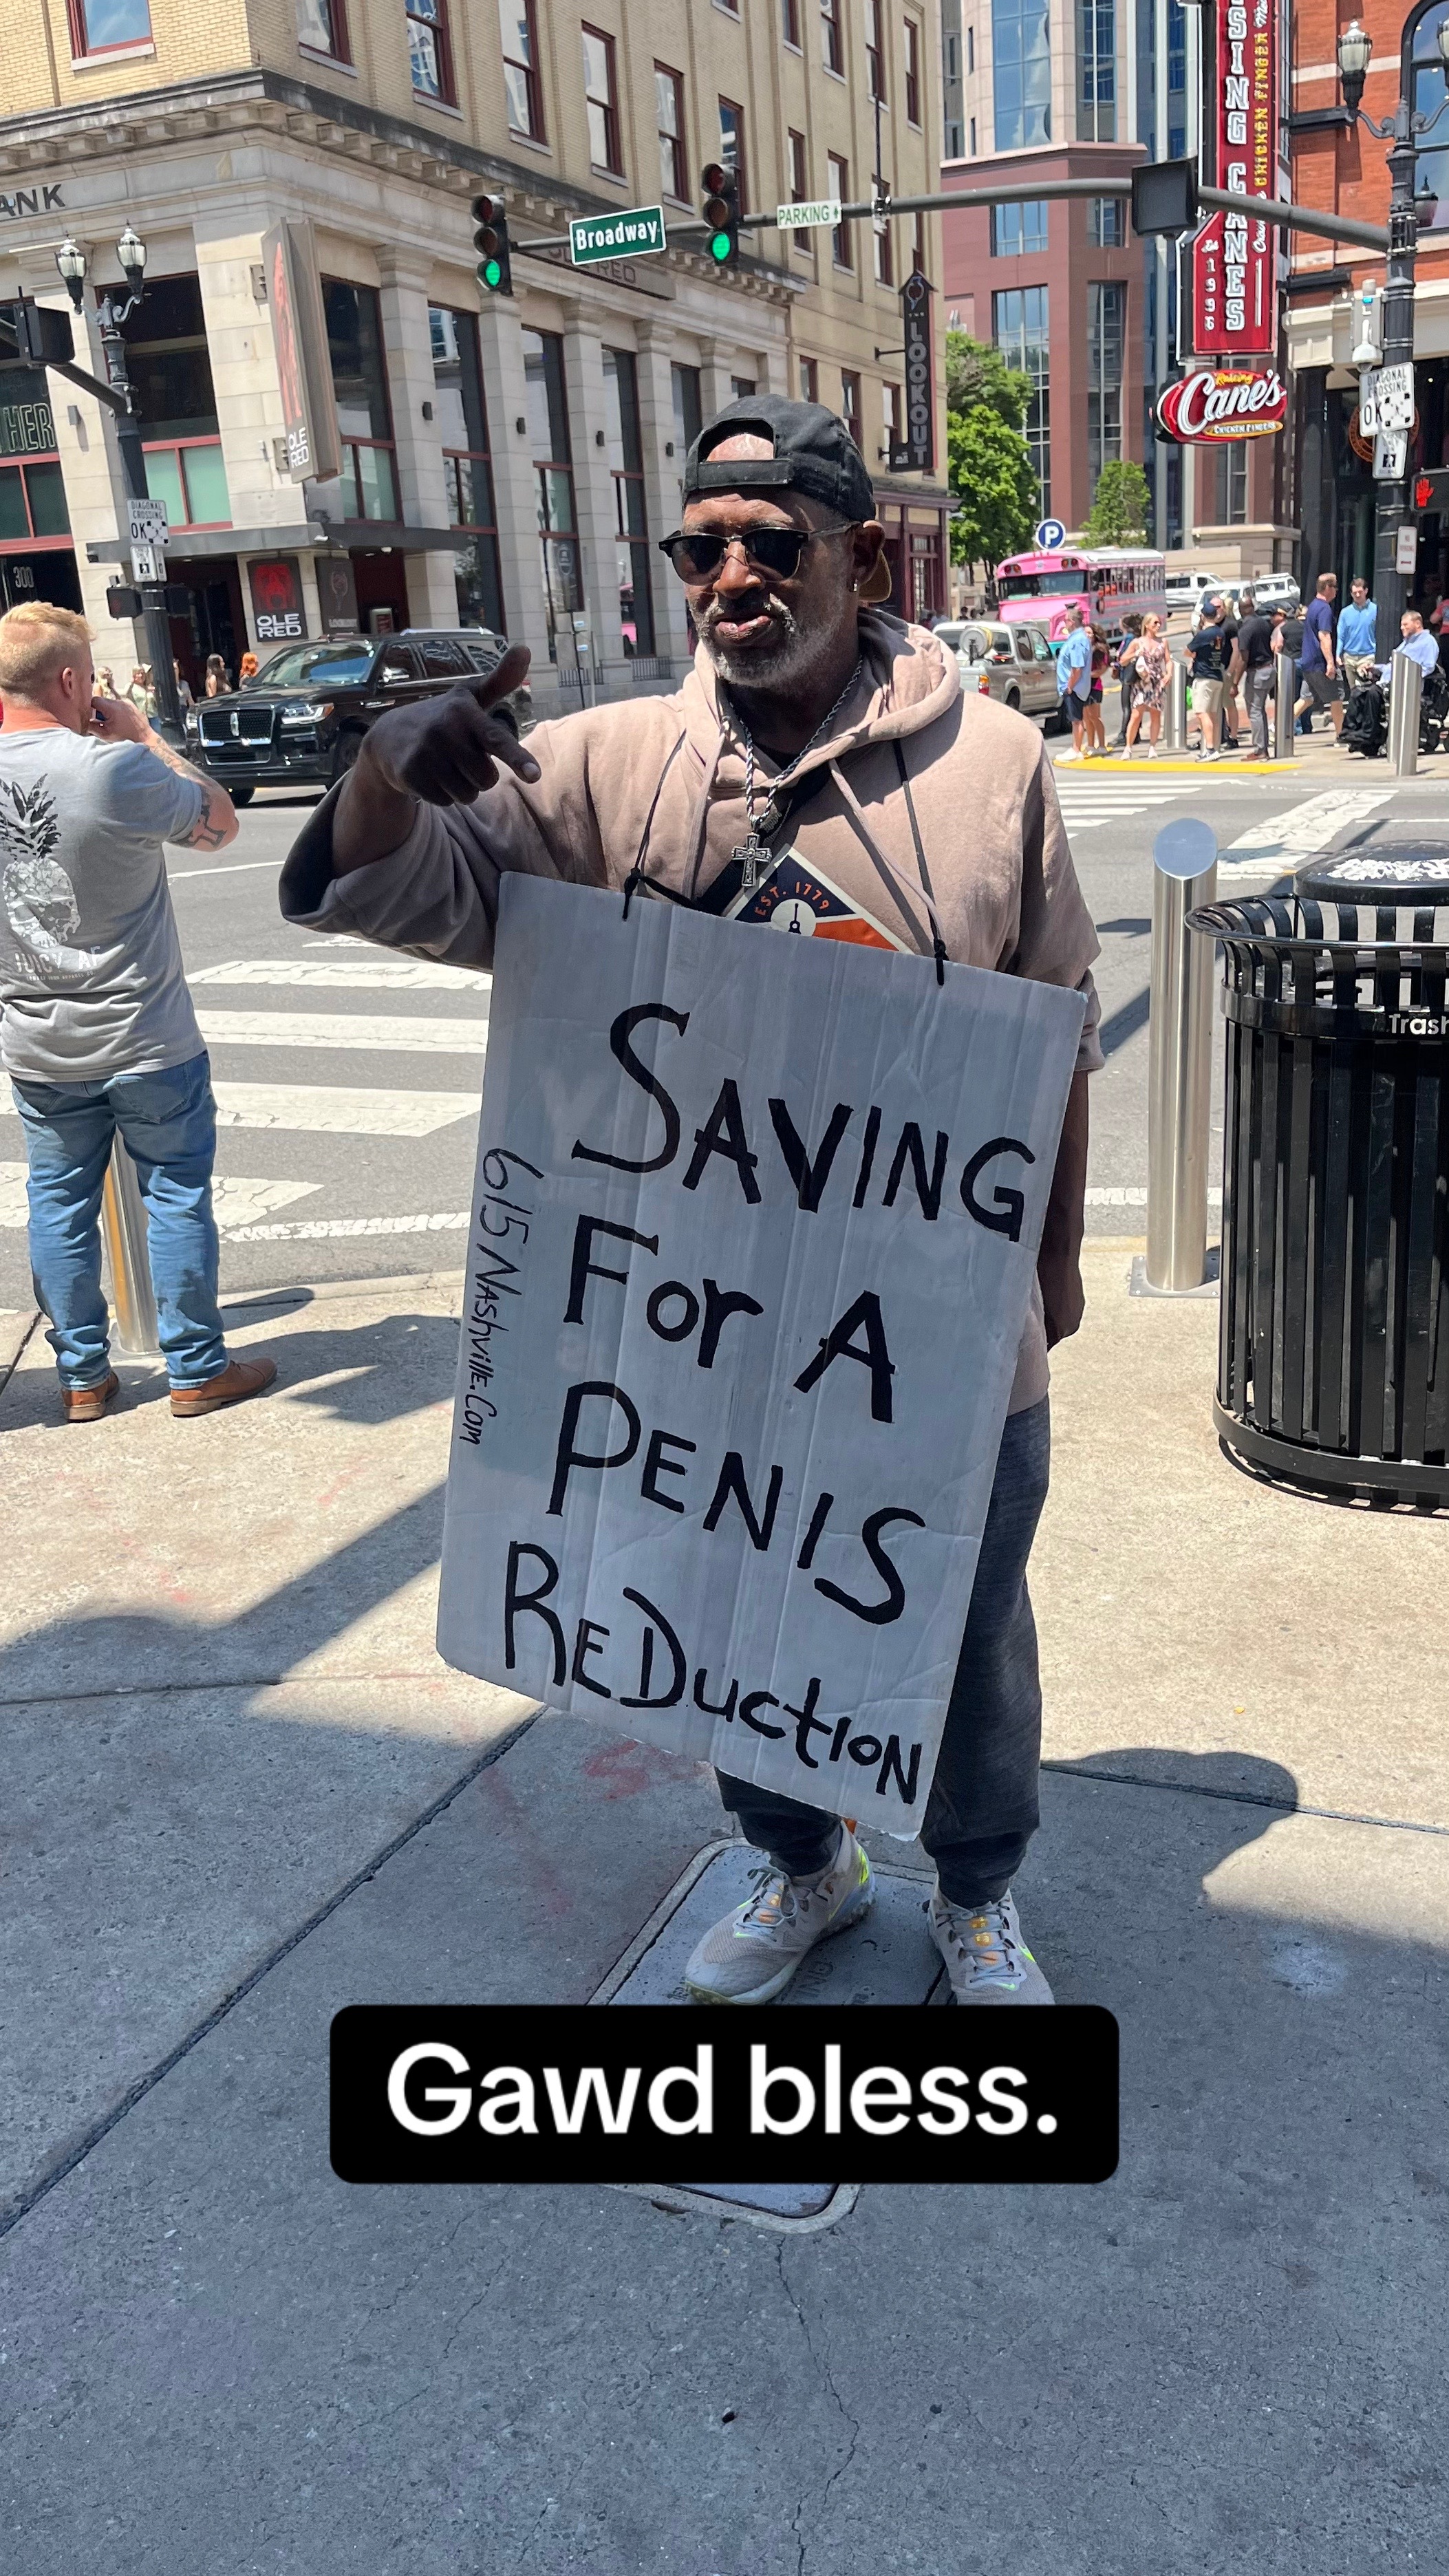 ANK
Broadway
PARKING
OLE RED
SING CANES
CHICKEN FINGER
1996
Raising
Cane's
CHICKEN FINGERS
LOOKOUT
HER
OLE
RED
DIAGONAL
CROSSING
OK
DIAGONAL
CROSSING
OK
300
OLE
RED
P
JUICY AF
EST. 1779
Trash
SAVING
For A
PENIS
REDuctioN
615 Nashville.Com
Gawd bless.